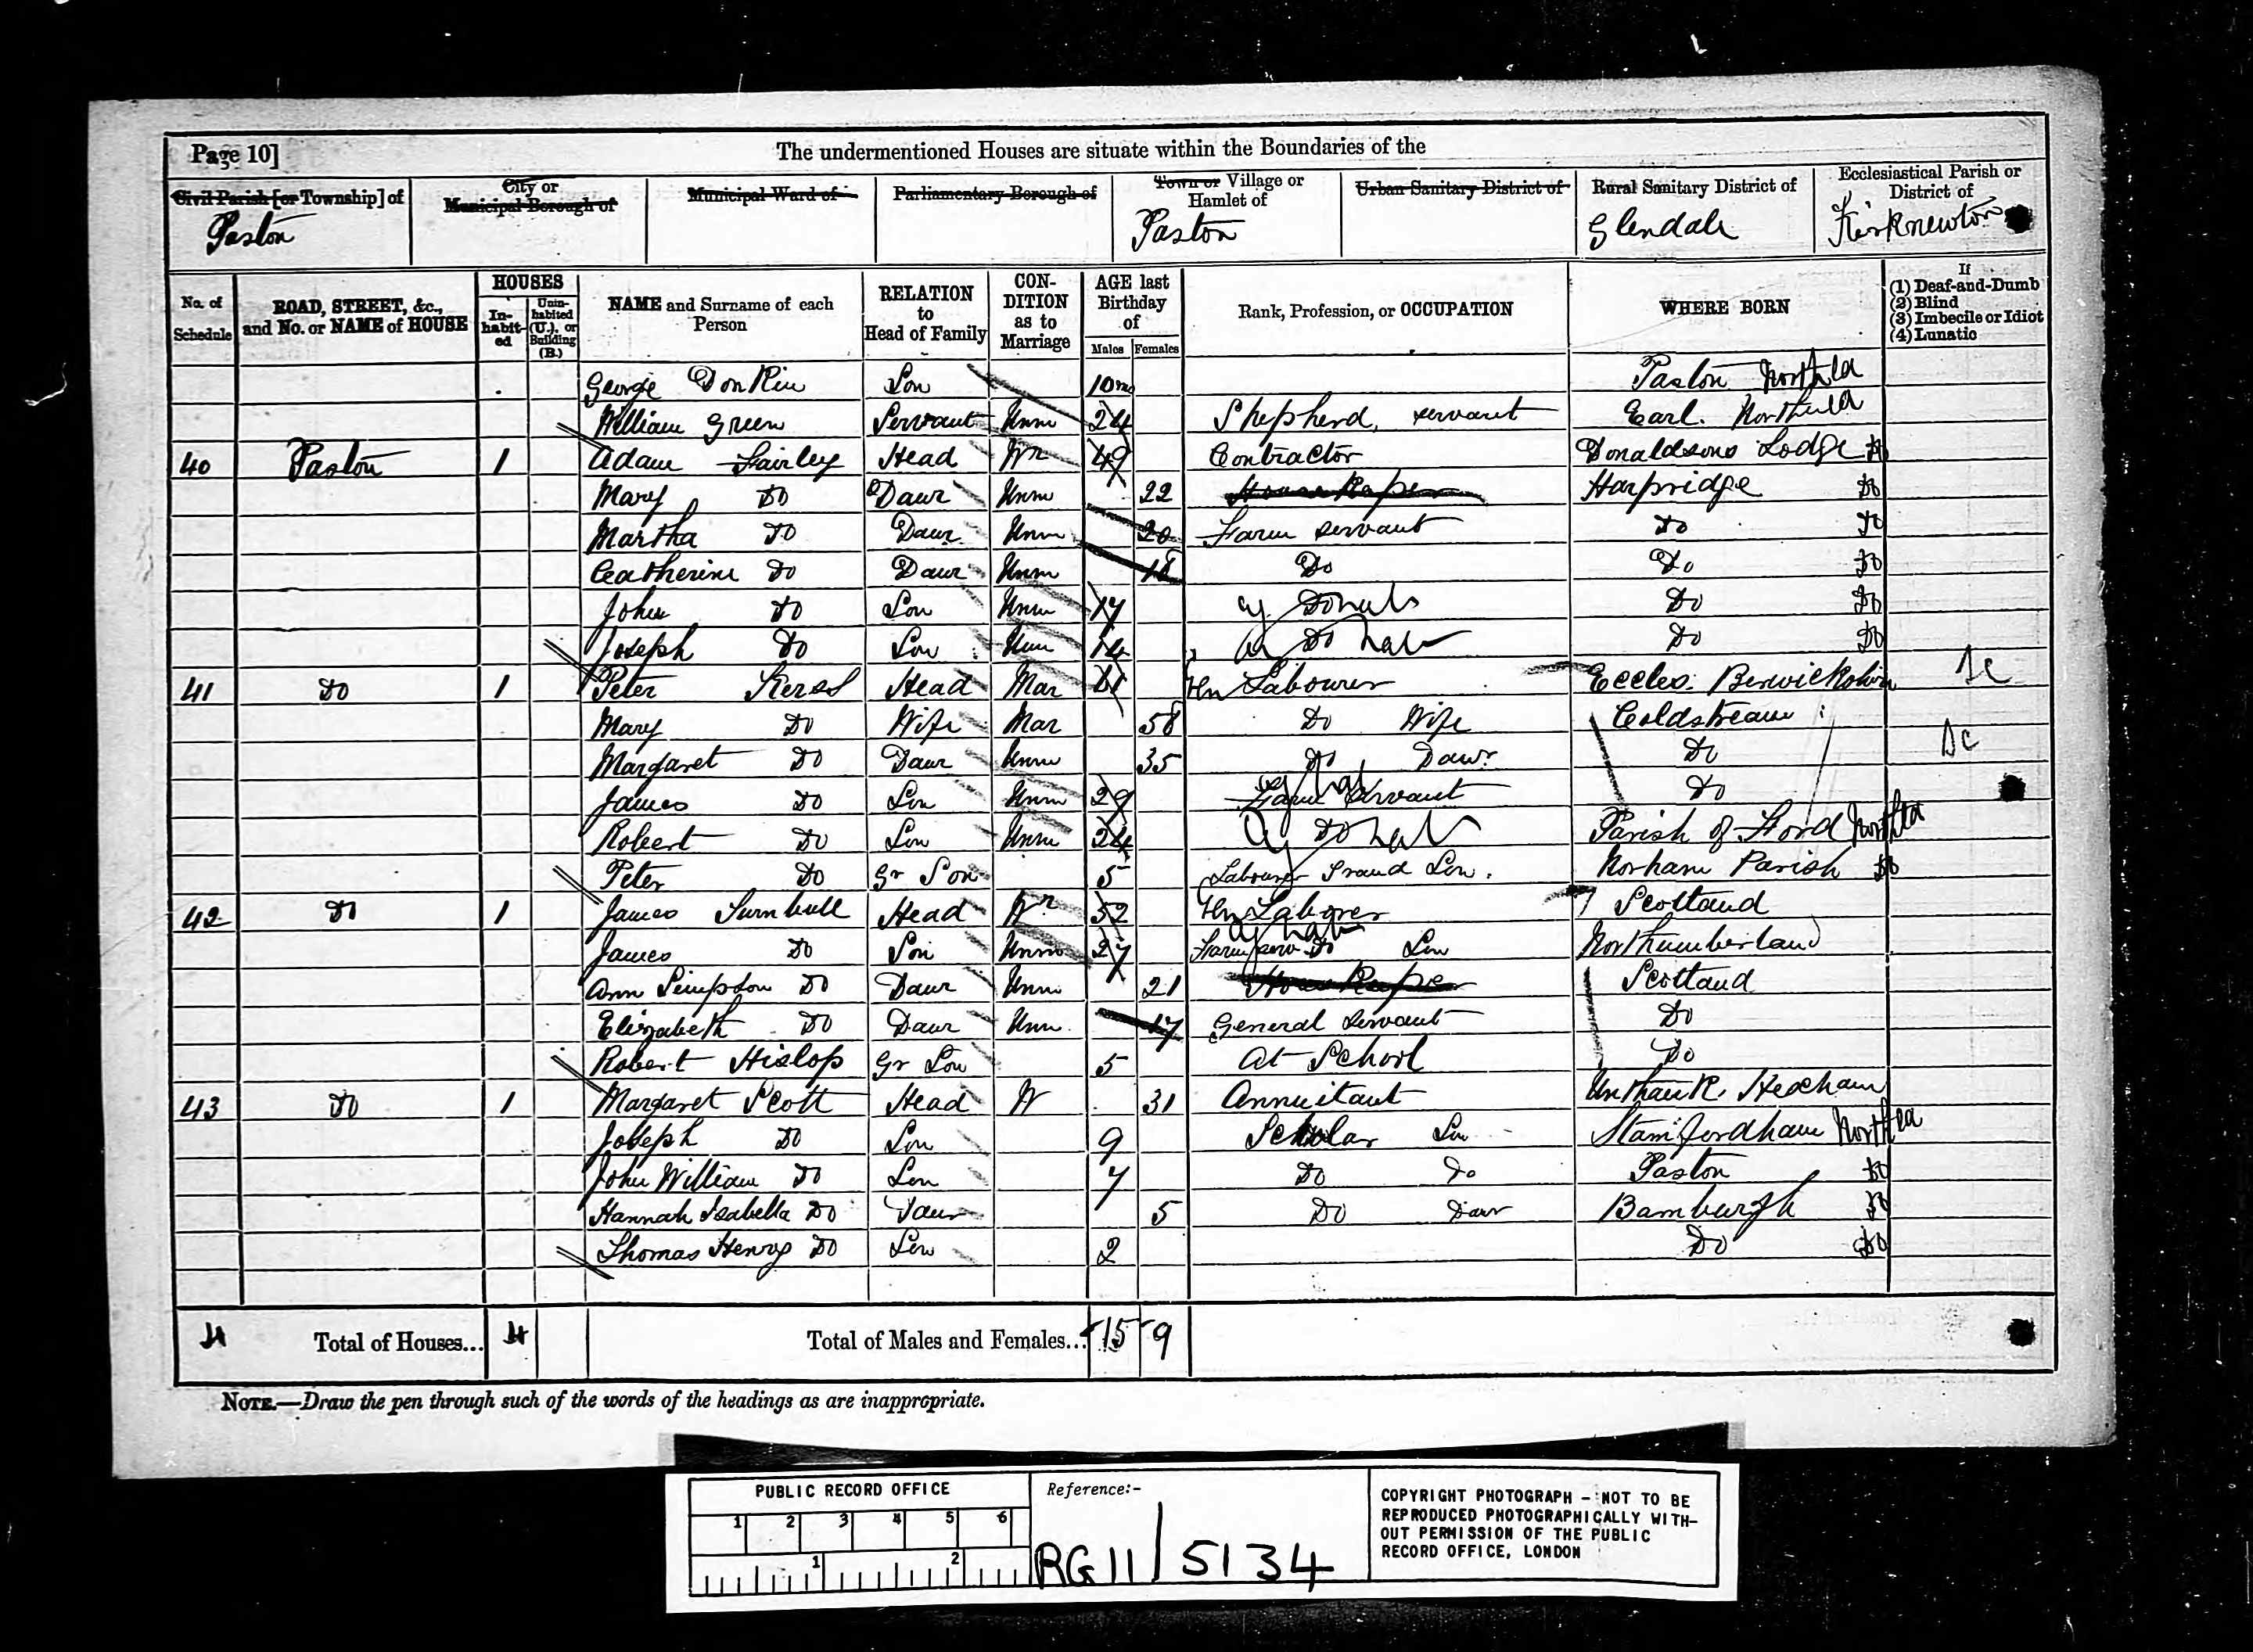 Page 10]
The undermentioned Houses are situate within the Boundaries of the
Civil Parish [or Township] of
City or Municipal Borough of
Municipal Ward of
Parliamentary Borough of
Town or Village or Hamlet of
Urban Sanitary District of
Rural Sanitary District of
Ecclesiastical Parish or District of
Paston Paston Glendale Kirknewton
No. of Schedule
ROAD, STREET, &c., and No. or NAME of HOUSE
HOUSES
In-habit-ed
Unin-habited (U.), or Building (B.)
NAME and Surname of each Person
RELATION to Head of Family
CON-DITION as to Marriage
AGE last Birthday of
Males Females
Rank, Profession, or OCCUPATION
WHERE BORN
If
(1) Deaf-and-Dumb
(2) Blind
(3) Imbecile or Idiot
(4) Lunatic
George Donkin Son 10mo Paston Northld
William Green Servant Unm 24 Shepherd, servant Earl. Northuld
40 Paston 1 Adam Fairley Head Wr 49 Contractor Donaldsons Lodge Do
Mary Do Daur Unm 22 Housekeeper Harpridge Do
Martha Do Daur Unm 20 Farm servant Do Do
Catherine Do Daur Unm 18 Do Do Do
John Do Son Unm 17 Do Do Do
Joseph Do Son Unm 14 Do Do Do
41 Do 1 Peter Kerss Head Mar 61 Labourer Eccles. Berwickshire Sc
Mary Do Wife Mar 58 Do Wife Coldstream
Margaret Do Daur Unm 35 Do Dawr Do Sc
James Do Son Unm 29 Farm Servant Do
Robert Do Son Unm 24 Ag Do Lab Parish of Ford Northld
Peter Do Gr Son 5 Labourer Grand Son. Norham Parish Do
42 Do 1 James Turnbull Head Wr 52 Laborer Scotland
James Do Son Unm 27 Farm serv Do Son Northumberland
Ann Simpson Do Daur Unm 21 Housekeeper Scotland
Elizabeth Do Daur Unm 17 General Servant Do
Robert Hislop Gr Son 5 At School Do
43 Do 1 Margaret Scott Head W 31 Annuitant Unthank, Hexham
Joseph Do Son 9 Scholar Son Stamfordham Northld
John William Do Son 7 Do Do Paston Do
Hannah Isabella Do Daur 5 Do Daur Bamburgh Do
Thomas Henry Do Son 2 Do Do
4 Total of Houses... 4 Total of Males and Females... 15 9
NOTE.—Draw the pen through such of the words of the headings as are inappropriate.
PUBLIC RECORD OFFICE
1 2 3 4 5 6
1 2
Reference:-
RG 11 / 5134
COPYRIGHT PHOTOGRAPH – NOT TO BE
REPRODUCED PHOTOGRAPHICALLY WITH-
OUT PERMISSION OF THE PUBLIC
RECORD OFFICE, LONDON